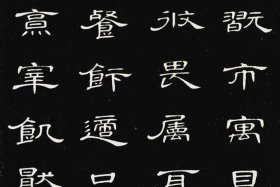 翫市寓目
攸畏属耳
餐飰適口
烹宰飢猒